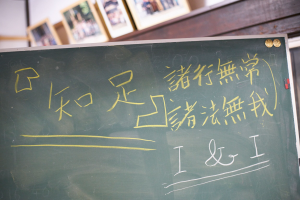 『知足』
諸行無常
諸法無我
I & I